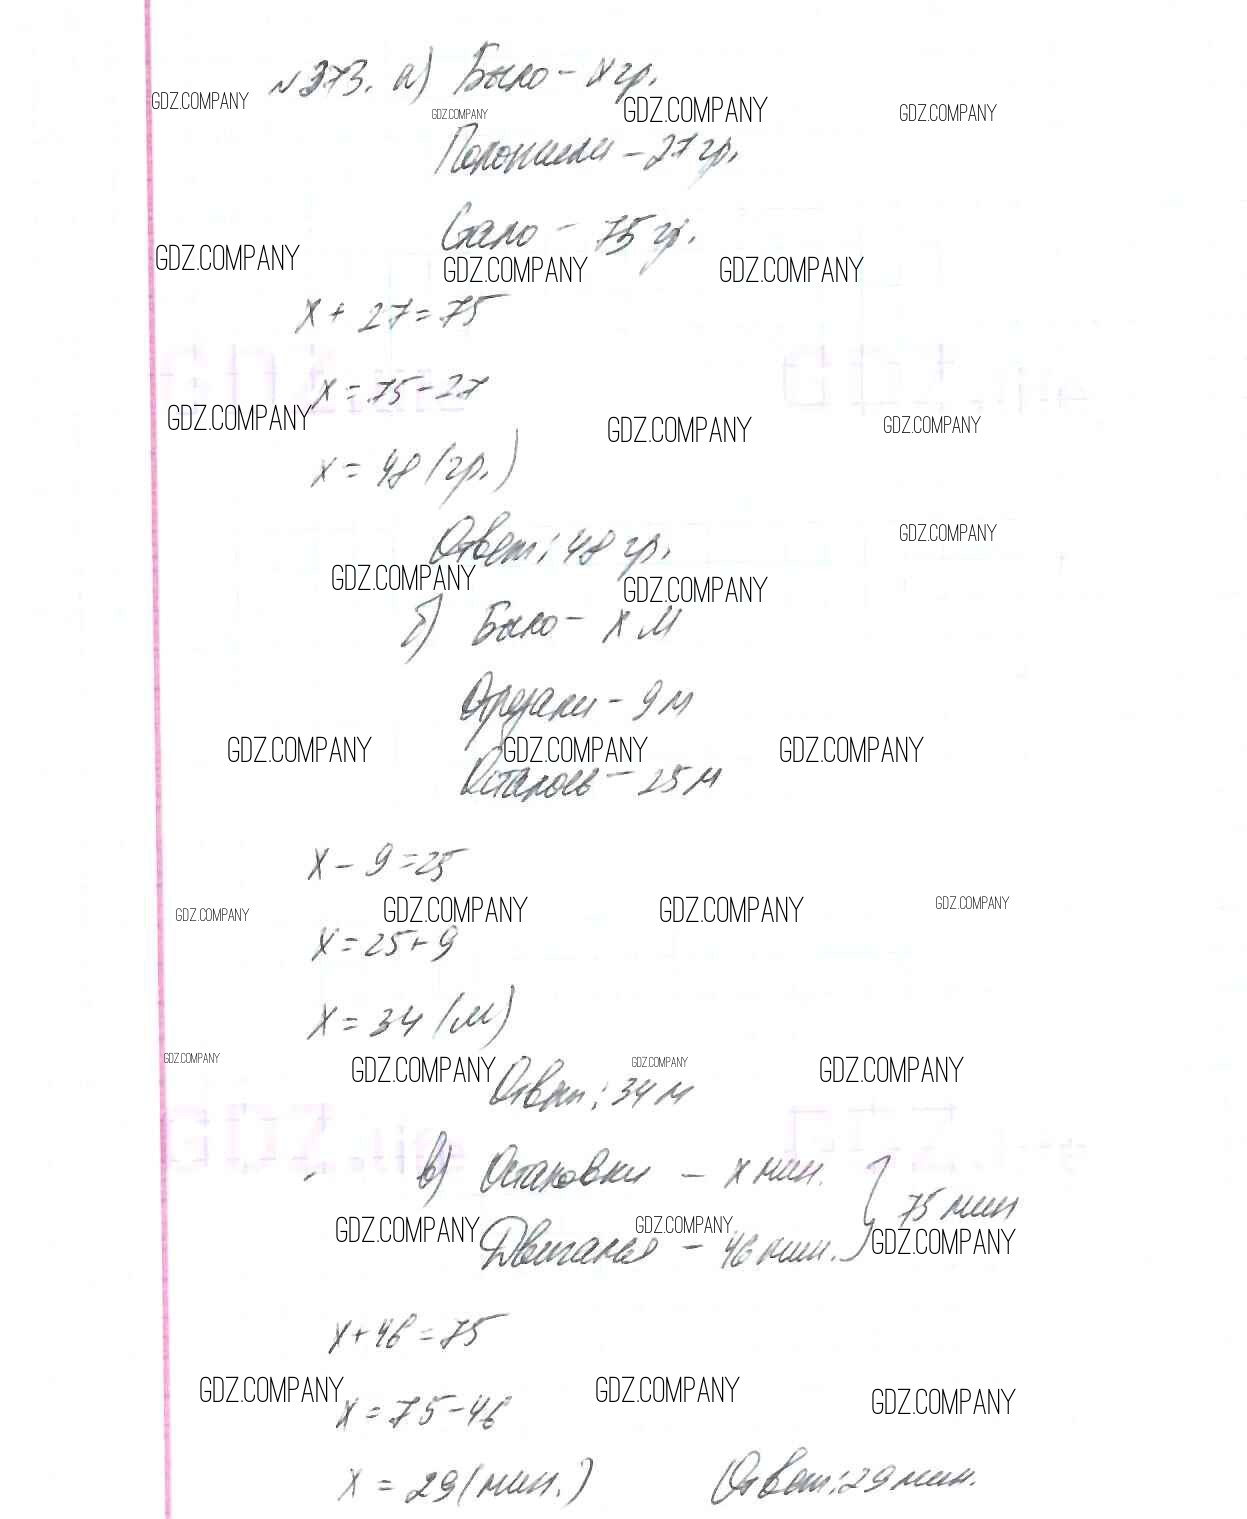 №373. а) Было - х гр.
GDZ.COMPANY GDZ.COMPANY GDZ.COMPANY GDZ.COMPANY
Положили - 27 гр.
Стало - 75 гр.
GDZ.COMPANY GDZ.COMPANY GDZ.COMPANY
х + 27 = 75
х = 75 - 27
GDZ.COMPANY GDZ.COMPANY GDZ.COMPANY
х = 48 (гр.)
Ответ: 48 гр. GDZ.COMPANY
GDZ.COMPANY GDZ.COMPANY
б) Было - х м
Отрезали - 9 м
GDZ.COMPANY GDZ.COMPANY GDZ.COMPANY
Осталось - 25 м
х - 9 = 25
GDZ.COMPANY GDZ.COMPANY GDZ.COMPANY GDZ.COMPANY
х = 25 + 9
х = 34 (м)
GDZ.COMPANY GDZ.COMPANY GDZ.COMPANY GDZ.COMPANY
Ответ: 34 м
в) Остановки - х мин. } 75 мин
GDZ.COMPANY GDZ.COMPANY GDZ.COMPANY
Двигался - 46 мин.
х + 46 = 75
GDZ.COMPANY GDZ.COMPANY GDZ.COMPANY
х = 75 - 46
х = 29 (мин.) Ответ: 29 мин.